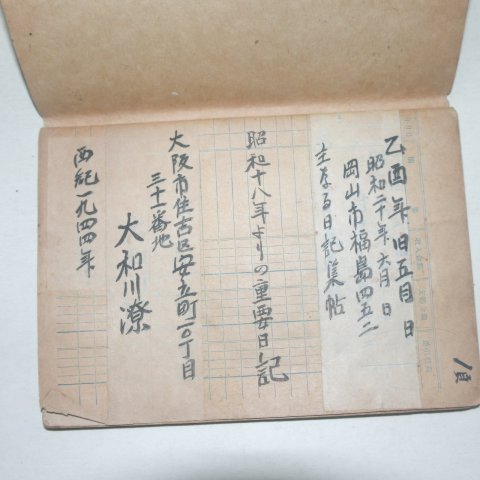 乙酉年旧五月 日
昭和二十年六月 日
岡山市福島四五二
主なる日記集帖
昭和十八年よりの重要日記
大阪市住吉区安立町一〇丁目
三十一番地
大和川潦
西紀一九四四年
1頁